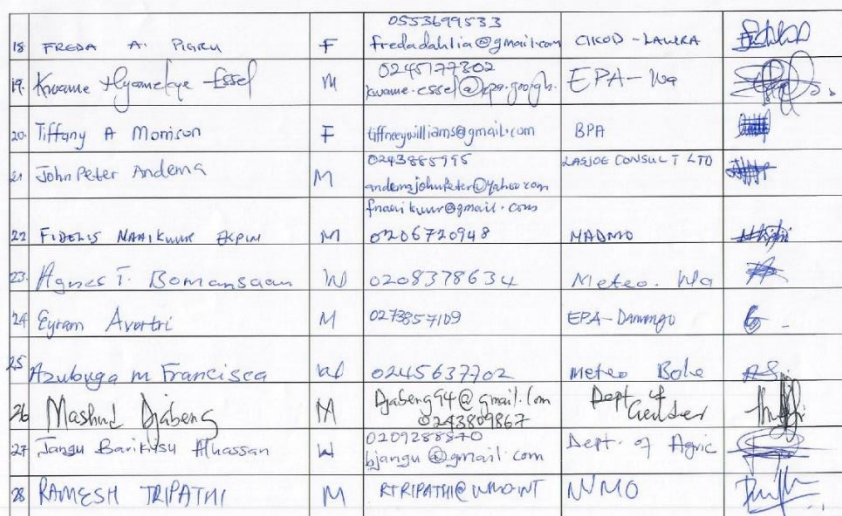 18 FREDA A. PIGRU F 0553699533 fredadahlia@gmail.com CIKOD - LAWRA
19. Kwame Essel M 0245177802 EPA - Wa
20. Tiffany A Morrison F tiffneywilliams@gmail.com BPA
21 John Peter Andema M 0243885995 andemajohnpeter@yahoo.com LASJOE CONSULT LTD
22 FIDELIS NAAIKUUR M fnaaikuur@gmail.com 0206720948 NADMO
23. Agnes T. Bomansaan W 0208378634 Meteo. Wa
24 Eyram Avortri M 0273857109 EPA - Damongo
25 Azubuga m Francisca W 0245637702 Meteo Bole
26 Mashud Djabeng M Djabeng94@gmail.com 0243809867 Dept of Gender
27 Jangu Barikisu Alhassan W 0209288840 bjangu@gmail.com Dept. of Agric
28 RAMESH TRIPATHI M RTRIPATHI@WMO.INT WMO